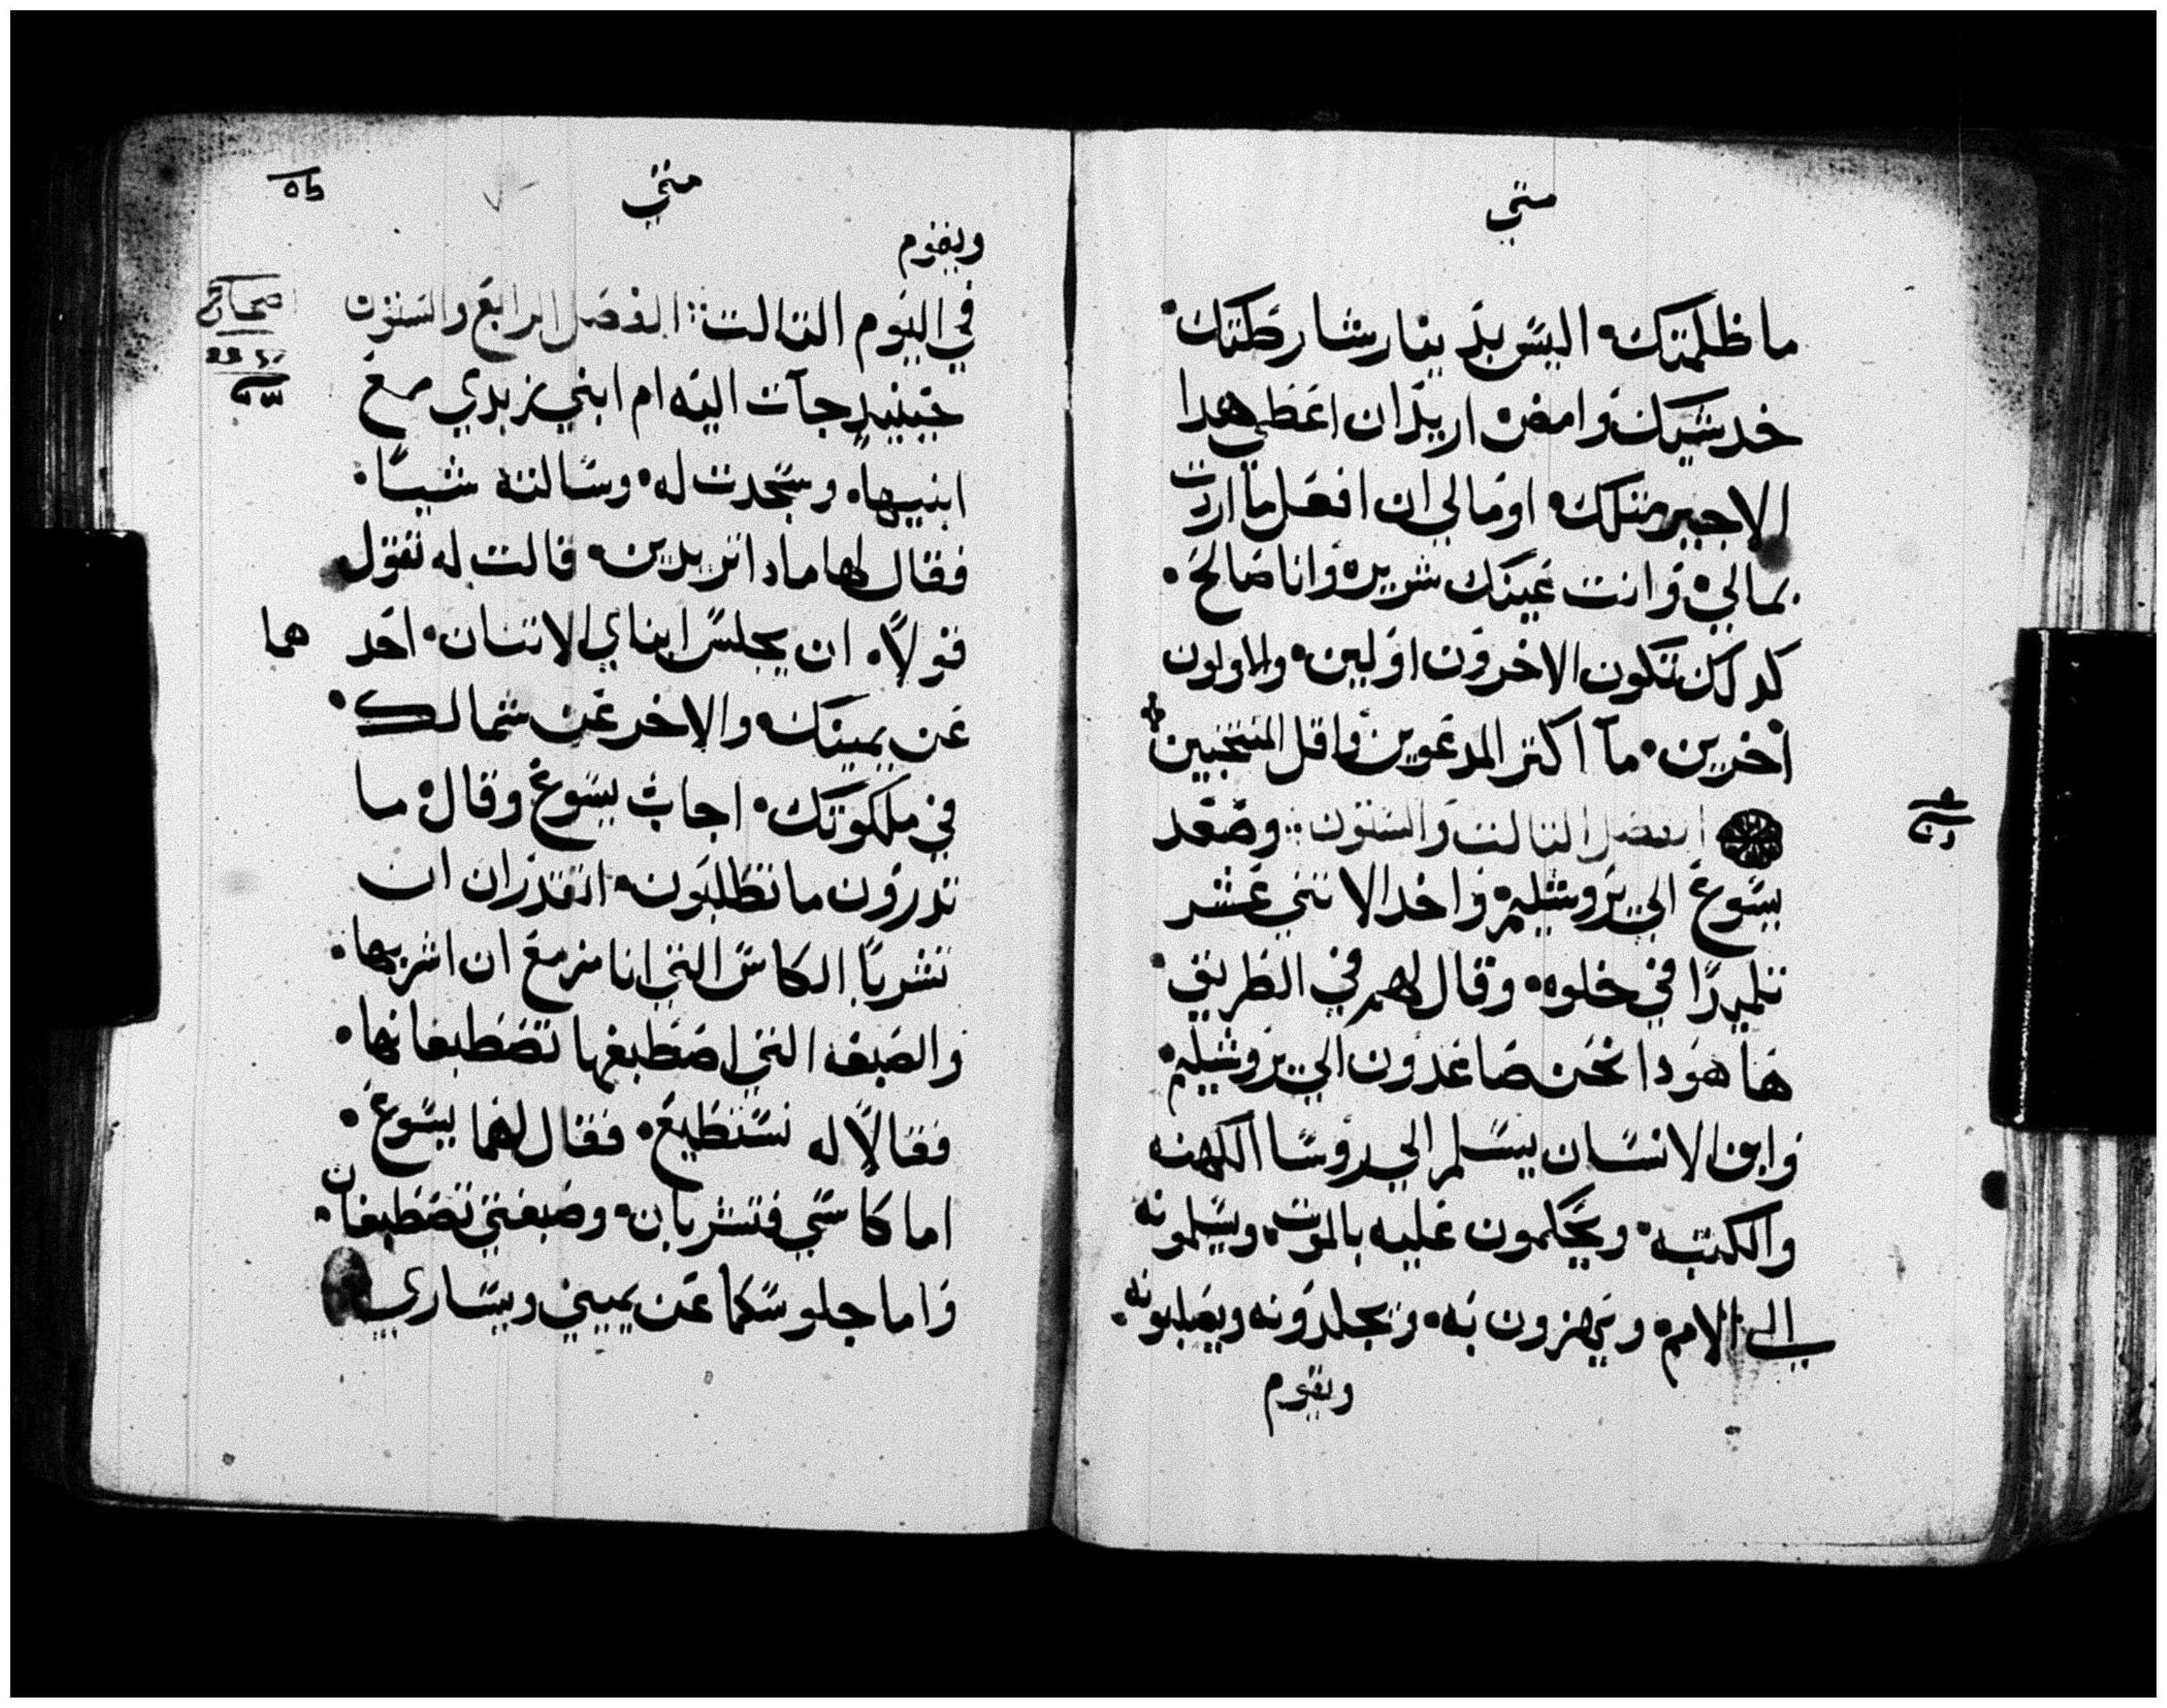 متي
ما ظلمتك اليس بدينار شارطتك
خد شيك وامض اريد ان اعطي هدا
الاجير متلك اوما لي ان افعل ما اردت
بمالي وانت عينك شريره وانا صالح
كدلك تكون الاخرون اولين والاولون
اخرين ما اكتر المدعوين واقل المنتخبين
الفصل التالت والستون وصعد
يسوع الي يروشليم واخد الاتني عشر
تلميدا في خلوه وقال لهم في الطريق
ها هودا نحن صاعدون الي يروشليم
وابن الانسان يسلم الي روسا الكهنه
والكتبه ويحكمون عليه بالموت ويسلمونه
الي الامم ويهزون به ويجلدونه ويصلبونه
ويقوم
متي
ويقوم
في اليوم التالت الفصل الرابع والستون
حينيد جآت اليه ام ابني زبدي مع
ابنيها وسجدت له وسالته شيا
فقال لها مادا تريدين قالت له تقول
قولا ان يجلس ابناي الاتنان احد هما
عن يمينك والاخر عن شمالك
في ملكوتك اجاب يسوع وقال ما
تدرون ما تطلبون اتقدران ان
تشربا الكاس التي انا مزمع ان اشربها
والصبغه التي اصطبغها تصطبغانها
فقالا له نستطيع فقال لهما يسوع
اما كاسي فتشربان وصبغتي تصطبغان
واما جلوسكما عن يميني ويساري